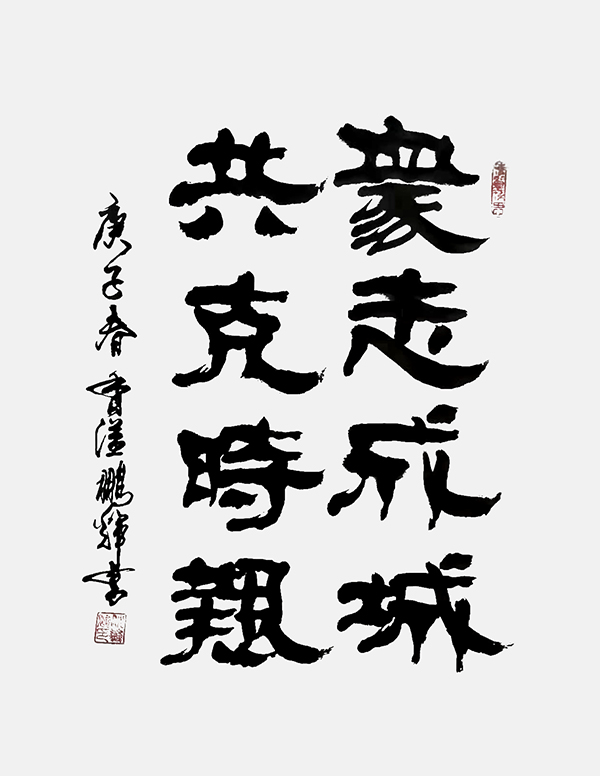 衆志成城
共克時艱
庚子春 鵬輝書